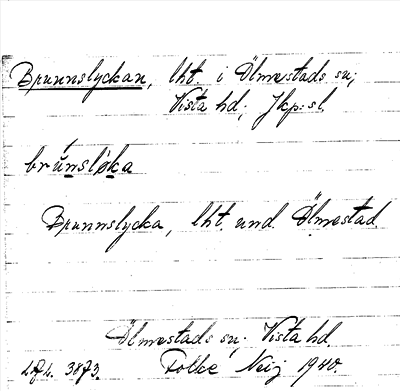 Brunnslyckan, lht. i Ölmestads sn;
Vista hd; Jkp:s l.
brúnsløka
Brunnslycka, lht und. Ölmestad
Ölmestads sn; Vista hd.
Folke Neij 1940